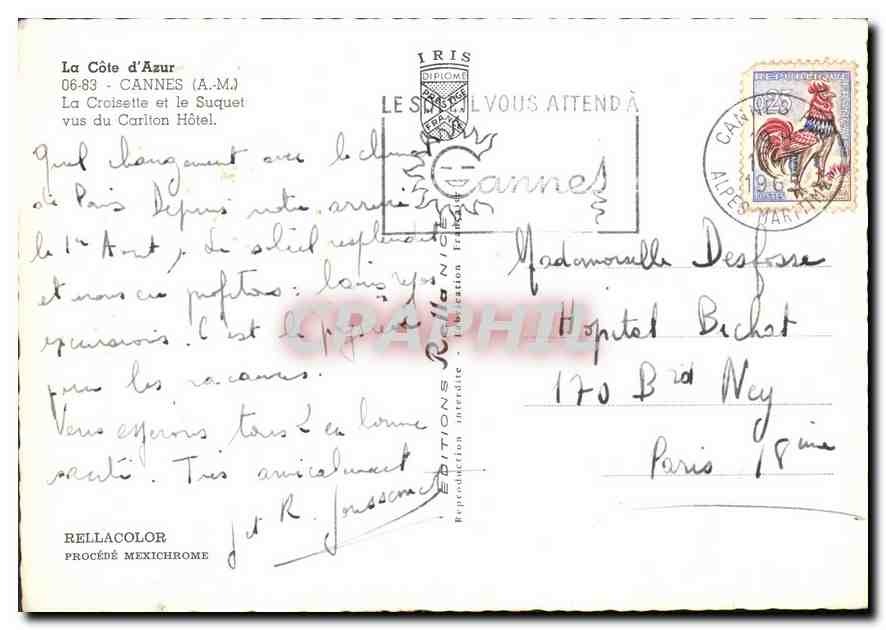 La Côte d'Azur
06-83 - CANNES (A.-M.)
La Croisette et le Suquet
vus du Carlton Hôtel.
IRIS
DIPLOME
PRESTIGE
FRANCE
LE SOLEIL VOUS ATTEND À
Cannes
REPUBLIQUE FRANÇAISE
0,25
POSTES
CANNES
196
ALPES MARITIMES
Quel changement avec le climat
de Paris Depuis notre arrivée
le 1er Aout, le soleil resplendit
et nous en profitons : bains repos
excursions. C'est le
pour les vacances.
Vous espérons tous 2 en bonne
santé. Très amicalement
J et R.
EDITIONS Rella NICE
Reproduction interdite - Fabrication Française
CPAPHIL
Mademoiselle Desfosse
Hopital Bichat
170 Brd Ney
Paris 18ème
RELLACOLOR
PROCÉDÉ MEXICHROME